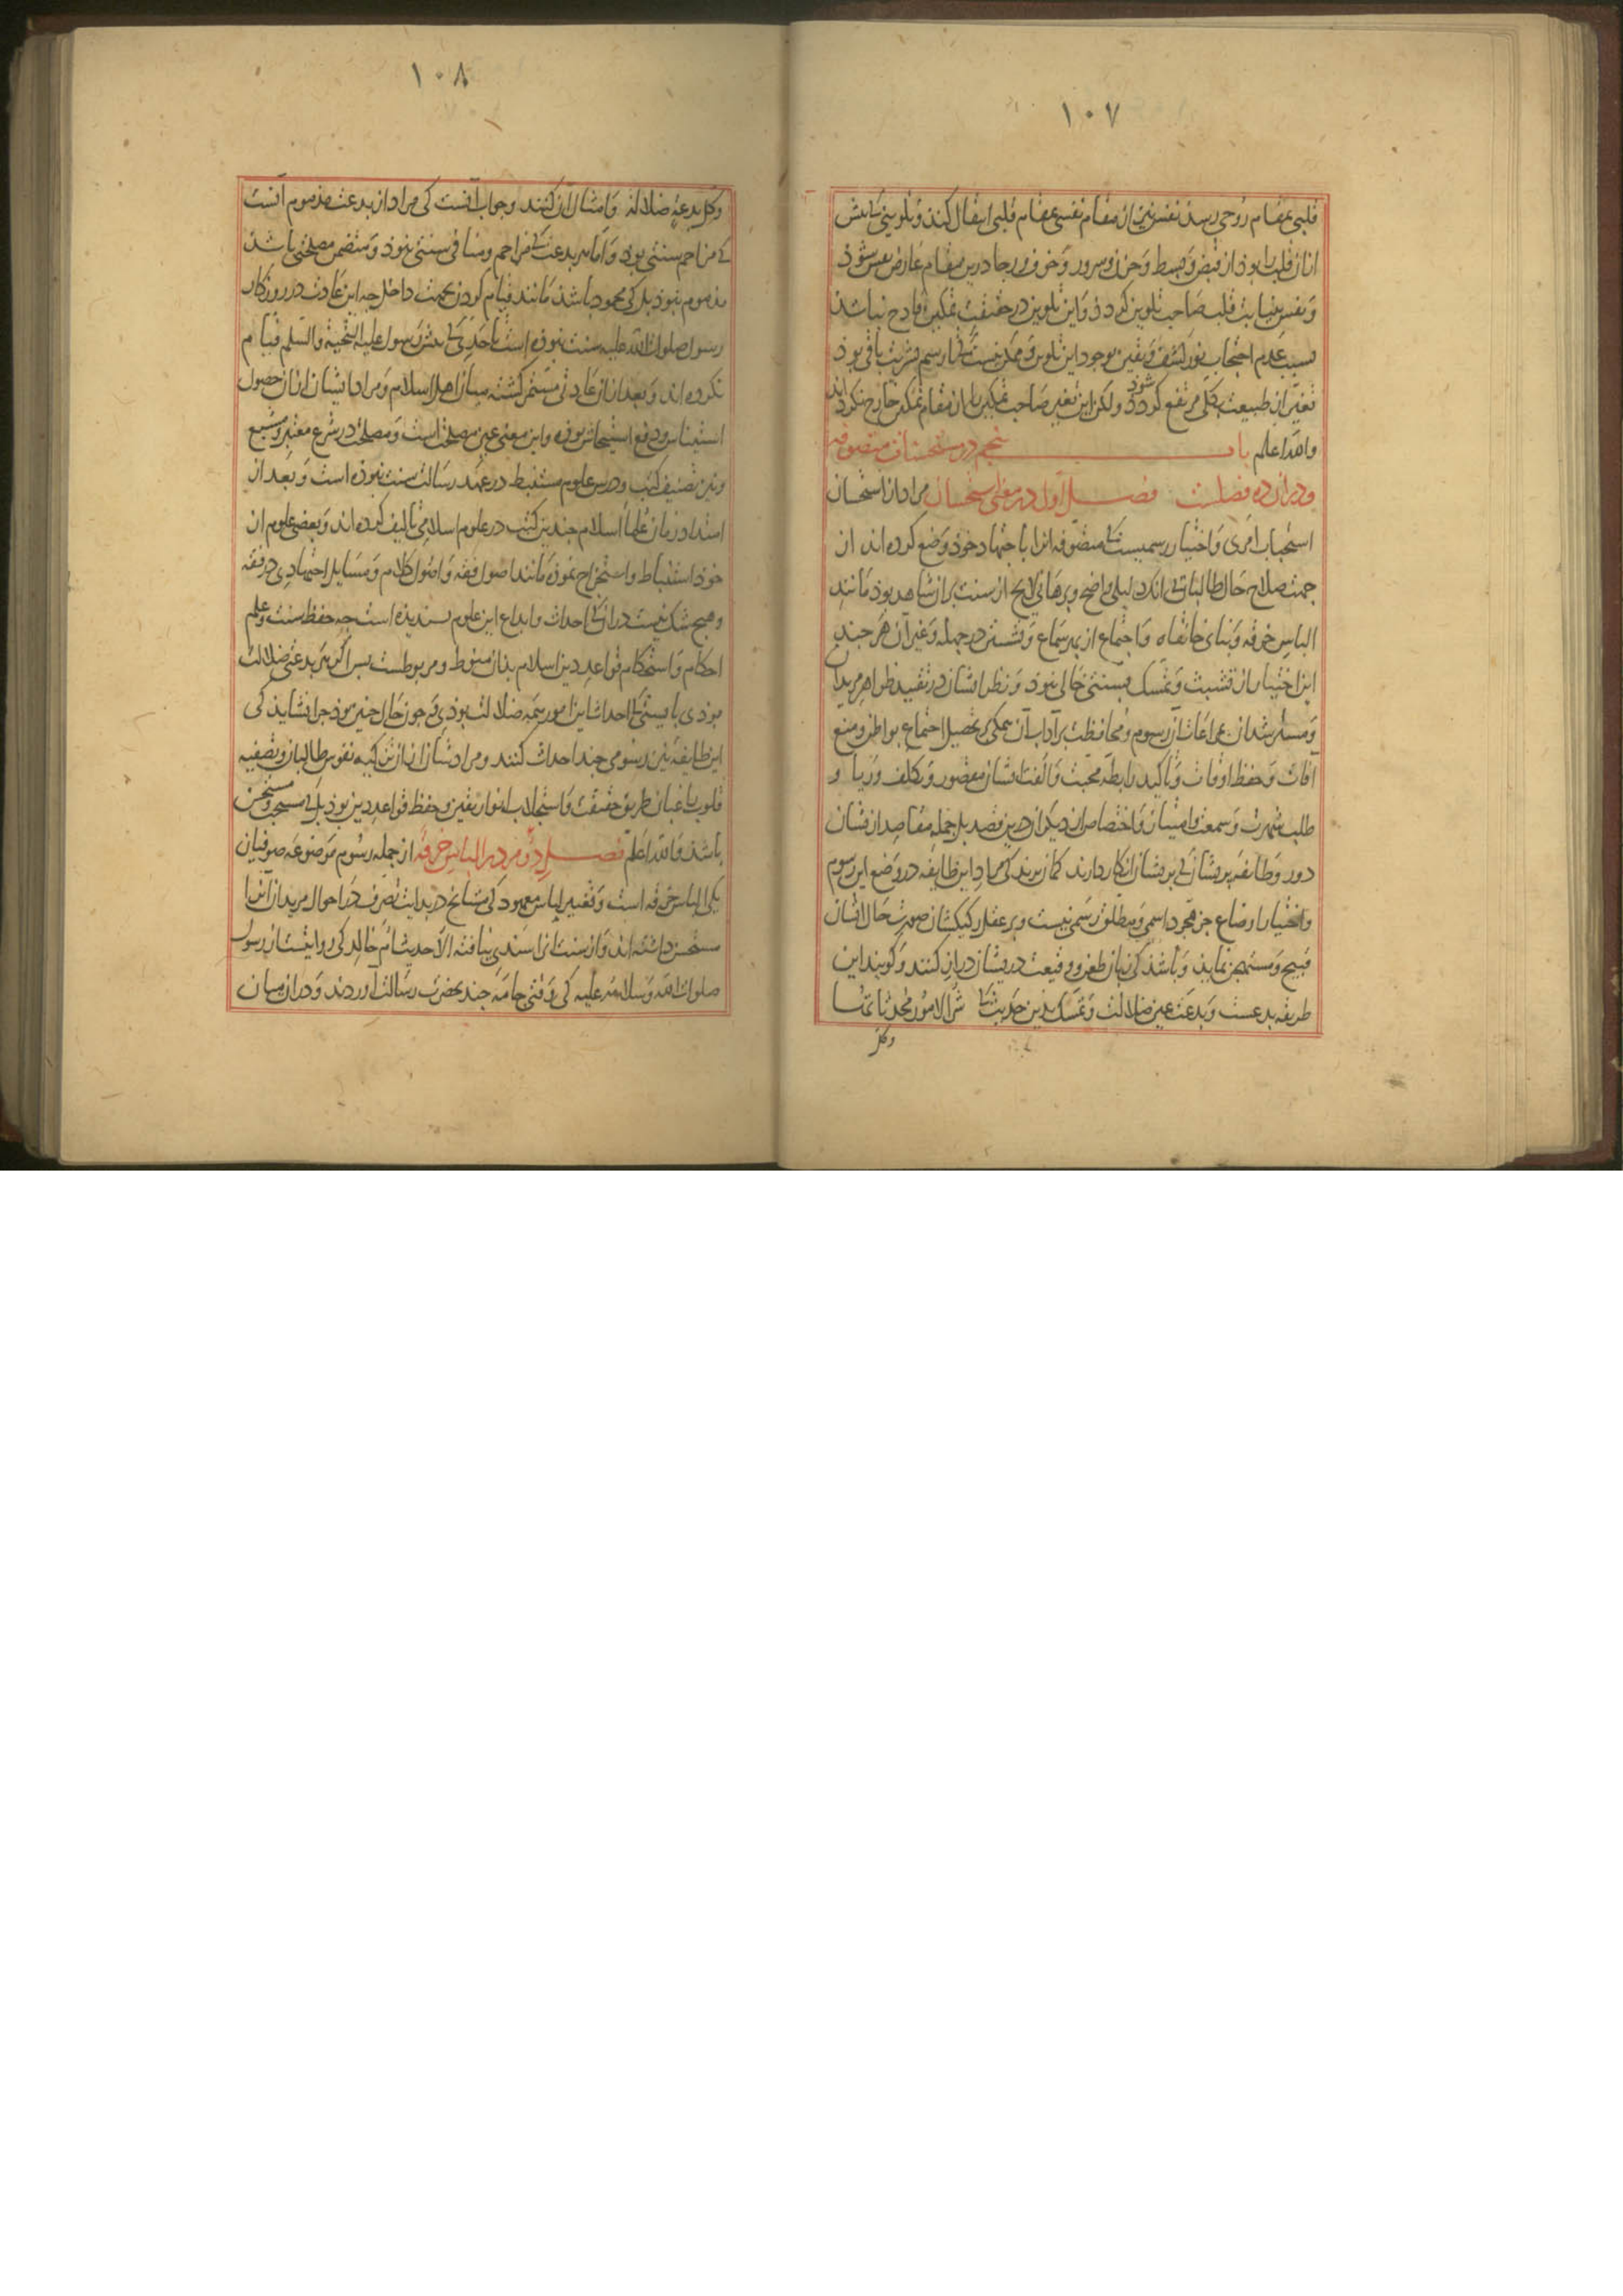 ١٠٧
قلبی بمقام روحی رسد نفس نیز از مقام نفسی بمقام قلبی انتقال کند و تلوینی که پیش
ازان قلب را بود از قبض و بسط و حزن و سرور و خوف و رجا درین مقام عارض نفس شوذ
و نفس بنیابت قلب صاحب تلوین کردذ و این تلوین در حقیقت تمکین قادح نباشذ
بسبب عدم احتجاب نور کشف و یقین بوجود این تلوین و ممکن نیست که تا رسم بشریت باقی بوذ
تغیر از طبیعت بکلی مرتفع کردد شود ولکن این تغیر صاحب تمکین را از مقام تمکین خارج نکرداند
والله اعلم باب پنجم در مستحسنات متصوفه
و دران ده فصلست فصل اول در معنی استحسان مراد از استحسان
استحباب امری و اختیار رسمیست که متصوفه انرا باجتهاد خوذ وضع کرده اند از
جهت صلاح حال طالبان بی انک دلیلی واضح و برهانی لایح از سنت بران شاهد بوذ مانند
الباس خرقه و بنای خانقاه و اجتماع از بهر سماع و نشستن در چهله و غیر آن هر چند
این اختیار از تشبث و تمسک بسنتی خالی نبوذ و نظر ایشان در تقیید ظواهر مریدان
و مسترشدان بمراعات آن رسوم و محافظت بر آداب آن همکی بر تحصیل اجتماع بواطن و منع
آفات و حفظ اوقات و تاکید رابطه محبت و الفت ایشان مقصور و تکلف و ریا و
طلب شهرت و سمعت و امتیاز و اختصاص از دیکران درین قصد بل جمله مقاصد ایشان
دور و طایفه‌ که بر ایشان انکار دارند کمان برند که مراد این طایفه در وضع این رسوم
و اختیار اوضاع جز مجرد اسمی و مطلق رسمی نیست و بر عقل رکیکشان صورت حال ایشان
قبیح و مستهجن نمایذ و باشذ که زبان طعن و وقیعت در ایشان دراز کنند و کویند این
طریقه بدعتست و بدعت عین ضلالت و تمسک بذین حدیث که شر الامور محدثاتها
وکل
١٠٨
وکل بدعة ضلالة و امثال آن کنند و جواب آنست کی مراد از بدعت مذموم آنست
که مزاحم سنتی بود و اما هر بدعت که مزاحم و منافی سنتی نبوذ و متضمن مصلحتی باشذ
مذموم نبوذ بل کی محمود باشذ مانند قیام کردن بجهت داخل چه این عادت در روزکار
رسول صلوات الله علیه سنت نبوده است تا حدی که پیش رسول علیه التحیة والسلم قیام
نکرده اند و بعد ازان عادتی مستمر کشته میان اهل اسلام و مراد ایشان ازان حصول
استیناس و دفع استیحاش بوده و این معنی عین مصلحت است و مصلحت در شرع معتبر و متبع
و نیز تصنیف کتب و درس علوم مستنبط در عهد رسالت سنت نبوده است و بعد از
امتداد زمان علماء اسلام چندین کتب در علوم اسلامی تالیف کرده اند و بعضی علوم از
خوذ استنباط و استخراج نموده مانند اصول فقه و اصول کلام و مسایل اجتهادی در فقه
و هیچ شک نیست دران که احداث و ابداع این علوم پسندیده است چه حفظ سنت و علم
احکام و استحکام قواعد دین اسلام بذان منوط و مربوطست پس اکر هر بدعتی ضلالت
بوذی بایستی که احداث این امور همه ضلالت بوذی و چون حال چنین بوذ چرا نشایذ کی
این طایفه نیز رسومی چند احداث کنند و مرادشان ازان تزکیه نفوس طالبان و تصفیه
قلوب راغبان طریق حقیقت و استجلاب انوار یقین و حفظ قواعد دین بوذ بل که مستحب و مستحسن
باشذ والله اعلم فصل دوم در الباس خرقه از جمله رسوم موضوعه صوفیان
یکی الباس خرقه است و تغییر لباس معهود کی مشایخ در بدایت تصرف در احوال مریدان آنرا
مستحسن داشته اند و از سنت انرا سندی نیافته الا حدیث ام خالد کی روایتست از رسول
صلوات الله و سلامه علیه کی وقتی جامه چند بحضرت رسالت آوردند و دران میان